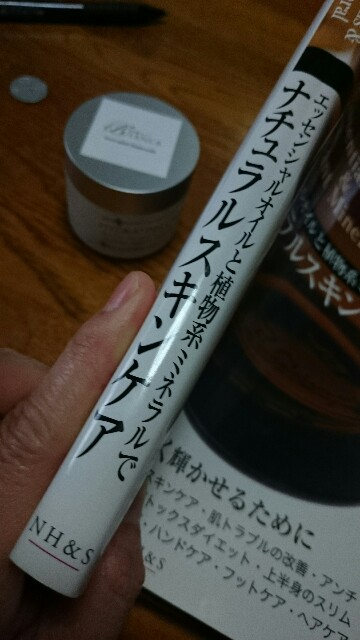 エッセンシャルオイルと植物系ミネラルで
ナチュラルスキンケア
NH&S
く輝かせるために
スキンケア・肌トラブルの改善・アンチ
トックスダイエット・上半身のスリム
・ハンドケア・フットケア・ヘアケ